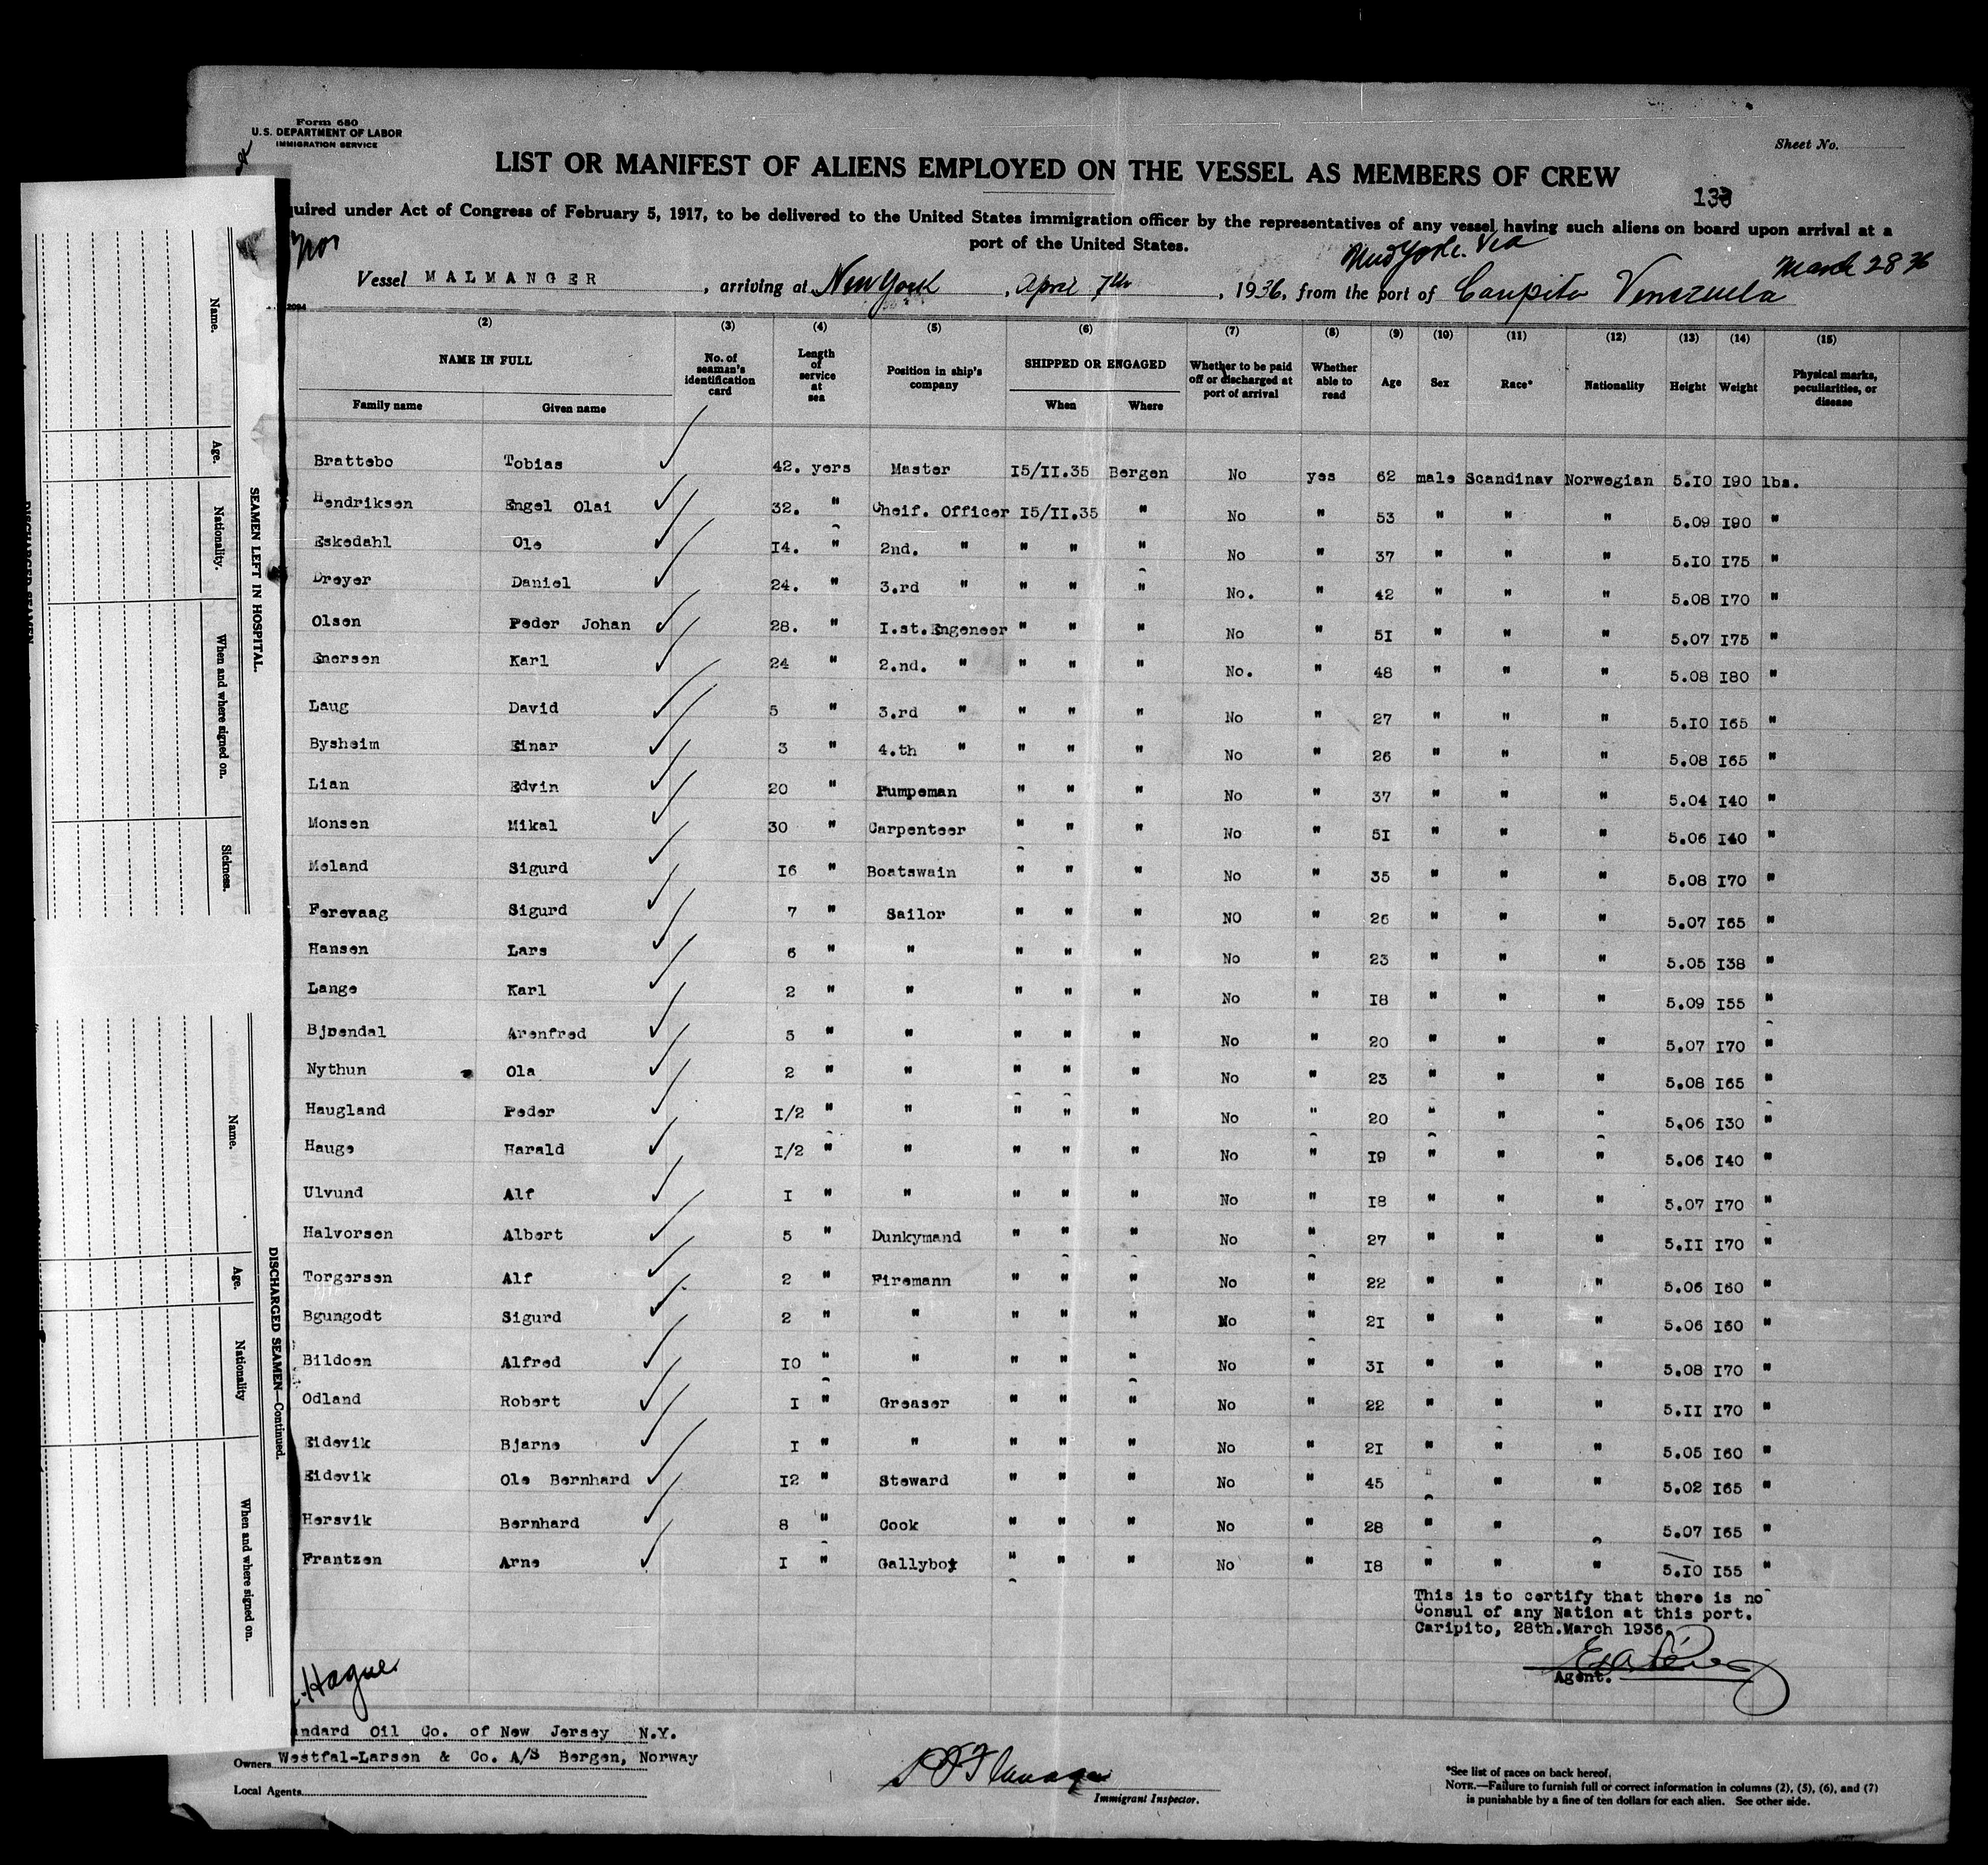 Form 680
U.S. DEPARTMENT OF LABOR
IMMIGRATION SERVICE
Sheet No.
LIST OR MANIFEST OF ALIENS EMPLOYED ON THE VESSEL AS MEMBERS OF CREW
quired under Act of Congress of February 5, 1917, to be delivered to the United States immigration officer by the representatives of any vessel having such aliens on board upon arrival at a
port of the United States.
Nor
New York. Via
March 28 36
Vessel MALMANGER, arriving at New York, April 7th, 1936, from the port of Caripito Venezuela
2094
(2) (3) (4) (5) (6) (7) (8) (9) (10) (11) (12) (13) (14) (15)
NAME IN FULL No. of seaman's identification card Length of service at sea Position in ship's company SHIPPED OR ENGAGED Whether to be paid off or discharged at port of arrival Whether able to read Age Sex Race* Nationality Height Weight Physical marks, peculiarities, or disease
Family name Given name When Where
Brattebo Tobias 42. yers Master 15/11.35 Bergen No yes 62 male Scandinav Norwegian 5.10 190 lbs.
Hendriksen Engel Olai 32. " Cheif. Officer 15/11.35 " No " 53 " " " 5.09 190 "
Eskedahl Ole 14. " 2nd. " " " " No " 37 " " " 5.10 175 "
Dreyer Daniel 24. " 3.rd " " " " No. " 42 " " " 5.08 170 "
Olsen Peder Johan 28. " I.st. Engeneer " " " No " 51 " " " 5.07 175 "
Enersen Karl 24 " 2.nd. " " " " No. " 48 " " " 5.08 180 "
Laug David 5 " 3.rd " " " " No " 27 " " " 5.10 165 "
Bysheim Einar 3 " 4.th " " " " No " 26 " " " 5.08 165 "
Lian Edvin 20 " Pumpeman " " " No " 37 " " " 5.04 140 "
Monsen Mikal 30 " Carpenteer " " " No " 51 " " " 5.06 140 "
Meland Sigurd 16 " Boatswain " " " No " 35 " " " 5.08 170 "
Ferevaag Sigurd 7 " Sailor " " " NO " 26 " " " 5.07 165 "
Hansen Lars 6 " " " " " No " 23 " " " 5.05 138 "
Lange Karl 2 " " " " " No " 18 " " " 5.09 155 "
Bjoendal Arenfred " " " " " No " 20 " " " 5.07 170 "
Nythun Ola 2 " " " " " No " 23 " " " 5.08 165 "
Haugland Peder 1/2 " " " " " No " 20 " " " 5.06 130 "
Hauge Harald 1/2 " " " " " No " 19 " " " 5.06 140 "
Ulvund Alf 1 " " " " " No " 18 " " " 5.07 170 "
Halvorsen Albert 5 " Dunkymand " " " No " 27 " " " 5.11 170 "
Torgersen Alf 2 " Firemann " " " No " 22 " " " 5.06 160 "
Bgungodt Sigurd 2 " " " " " No " 21 " " " 5.06 160 "
Bildoen Alfred 10 " " " " " No " 31 " " " 5.08 170 "
Odland Robert 1 " Greaser " " " No " 22 " " " 5.11 170 "
Eidevik Bjarne 1 " " " " " No " 21 " " " 5.05 160 "
Eidevik Ole Bernhard 12 " Steward " " " No " 45 " " " 5.02 165 "
Hersvik Bernhard 8 " Cook " " " No " 28 " " " 5.07 165 "
Frantzen Arne 1 " Gallyboy " " " No " 18 " " " 5.10 155 "
This is to certify that there is no
Consul of any Nation at this port.
Caripito, 28th.March 1936.
Agent.
Hague
andard Oil Co. of New Jersey N.Y.
Owners Westfal-Larsen & Co. A/S Bergen, Norway
Local Agents
Immigrant Inspector.
*See list of races on back hereof.
NOTE.—Failure to furnish full or correct information in columns (2), (5), (6), and (7)
is punishable by a fine of ten dollars for each alien. See other side.
SEAMEN LEFT IN HOSPITAL.
Name. Age. Nationality. When and where signed on. Sickness.
DISCHARGED SEAMEN—Continued.
Name. Age. Nationality When and where signed on.